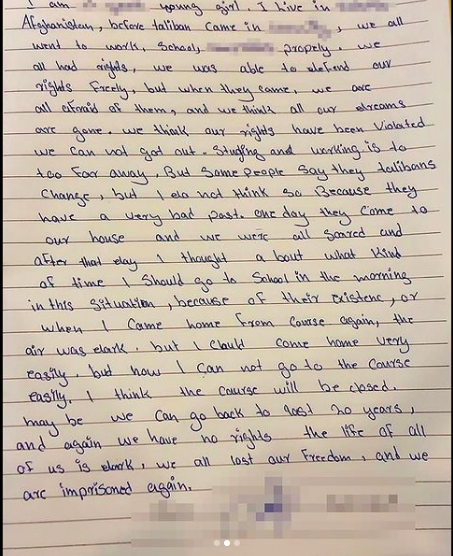 I am young girl. I live in
Afghanistan, before taliban came in , we all
went to work, School, propely. we
all had rights, we was able to defend our
rights freely, but when they came, we are
all afraid of them, and we think all our dreams
are gone. we think our rights have been Violated
we can not got out. Studying and working is to
too far away, But Some people say they talibans
Change, but I do not think so Because they
have a very bad past. one day they Come to
our house and we were all scared and
after that day I thought a bout what Kind
of time I Should go to School in the morning
in this Situation, because of their existenc, or
when I Came home from course again, the
air was dark. but I Could come home very
easily. but now I Can not go to the Course
easily. I think the Course will be closed.
may be we can go back to last 20 years,
and again we have no rights the life of all
of us is dark, we all lost our Freedom, and we
are imprisoned again.